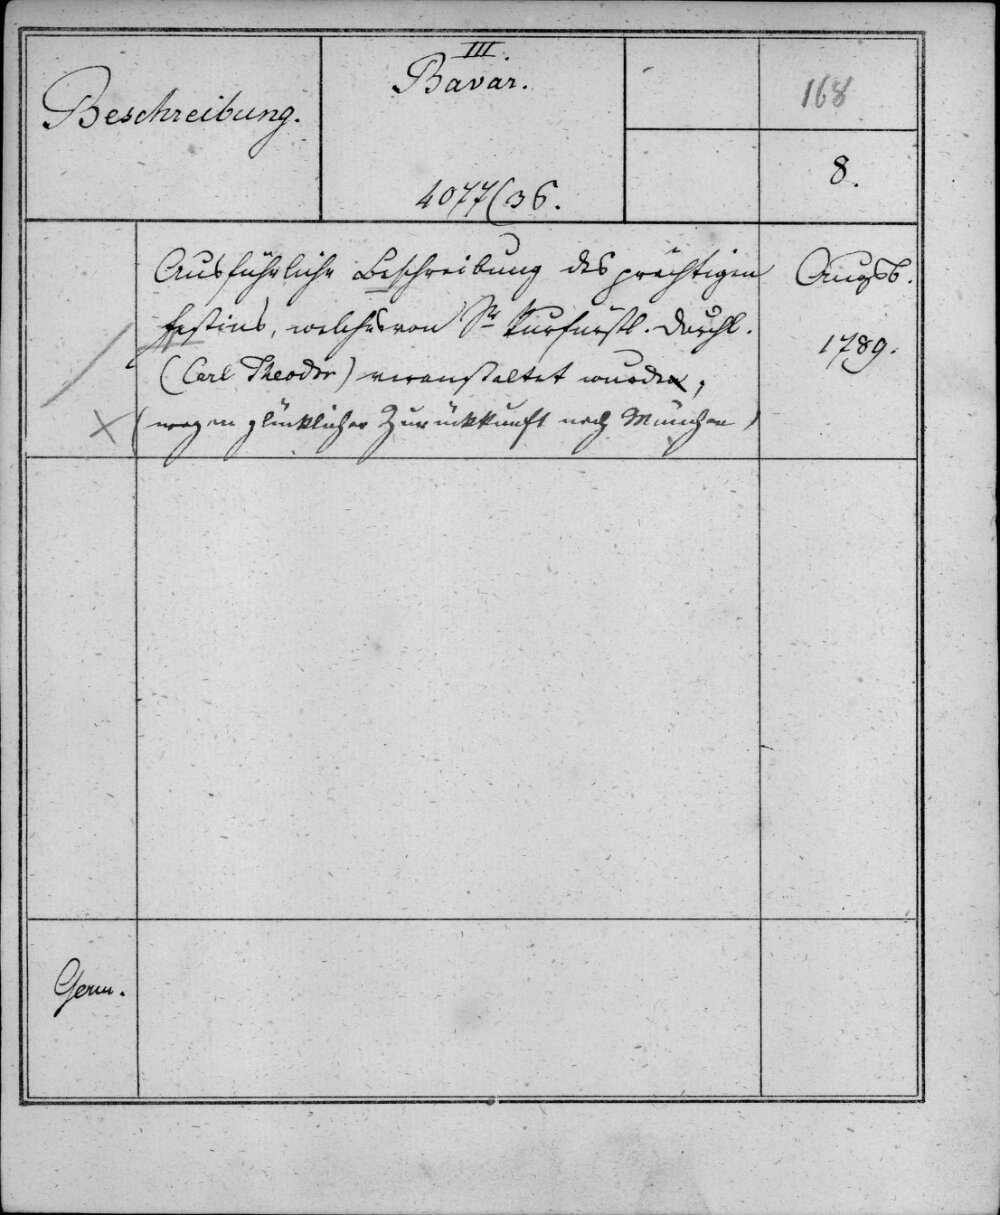 Beschreibung.
III
Bavar.
4077(36.
168
8.
Ausführliche Beschreibung des prächtigen
Festins, welches von Sr Kurfürstl. Durchl.
(Carl Theodor) veranstaltet wurden,
(wegen glücklicher Zurückkunft nach München)
Augsb.
1789.
Germ.